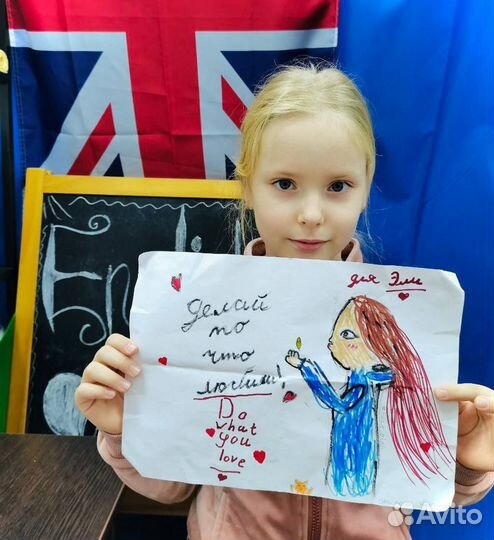 для Эли
Делай
то
что
любишь!
Do
what
you
love
Avito